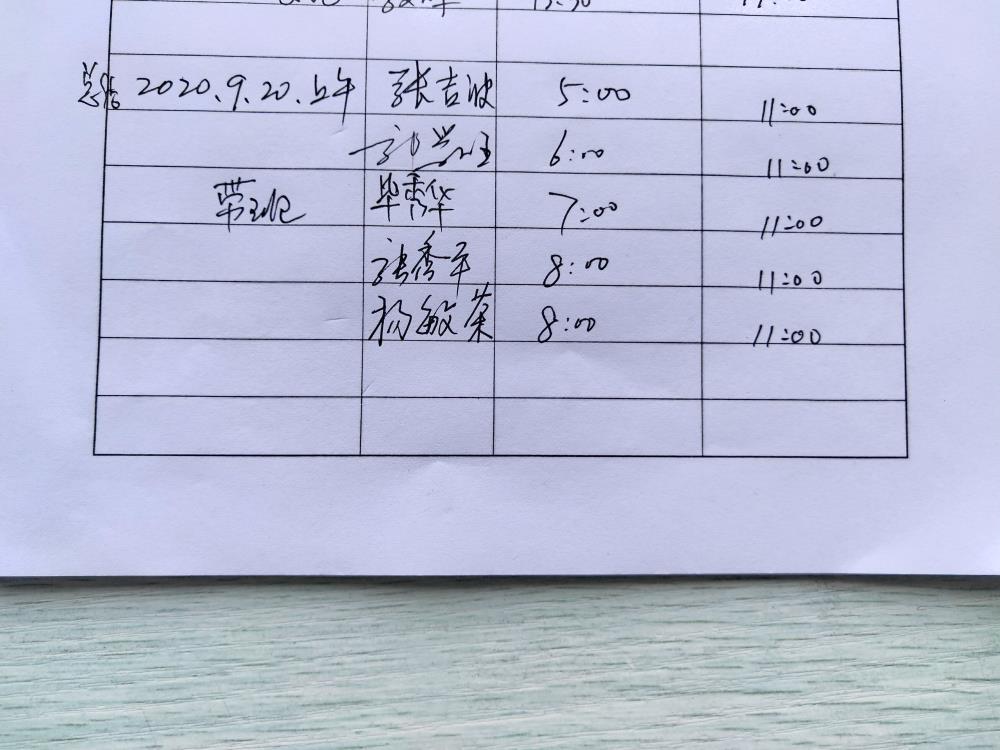 总结 2020.9.20.上午 张吉波 5:00 11:00
6:00 11:00
带班 毕秀华 7:00 11:00
张秀平 8:00 11:00
杨敏荣 8:00 11:00